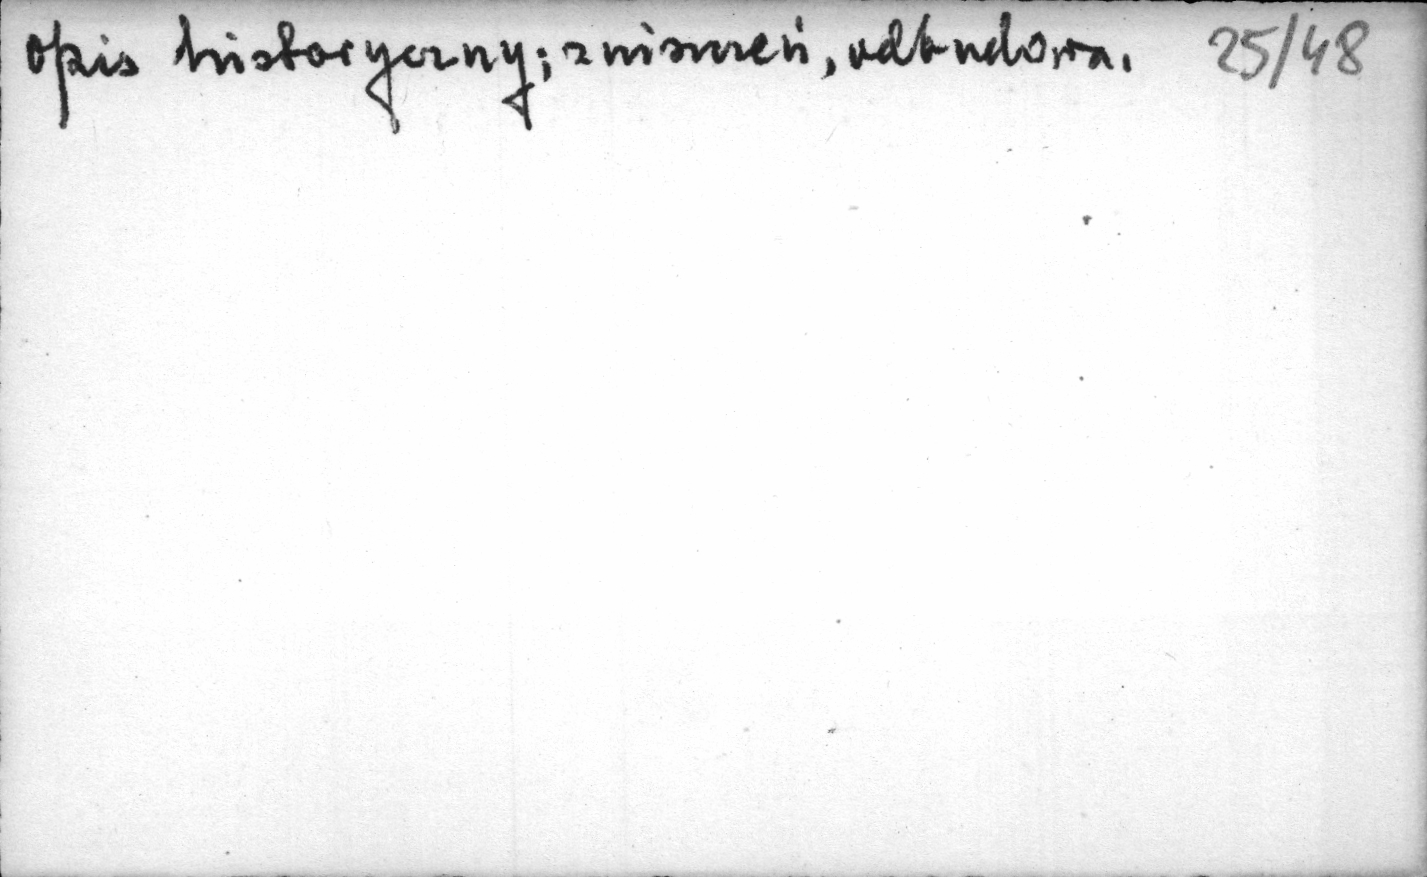 opis historyczny; zniszczeń, odbudowa. 25/48